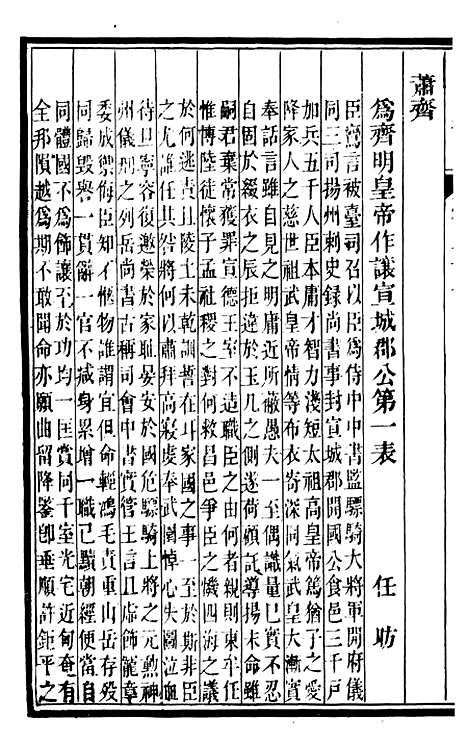 蕭齊
為齊明皇帝作讓宣城郡公第一表 任昉
臣鸞言被臺司召以臣為侍中中書監驃騎大將軍開府儀
同三司揚州刺史錄尚書事封宣城郡開國公食邑三千戶
加兵五千人臣本庸才智力淺短太祖高皇帝篤猶子之愛
降家人之慈世祖武皇帝情等布衣寄深同氣武皇大漸實
奉話言雖自見之明庸近所蔽愚夫一至偶識量已實不忍
自固於綴衣之辰拒違於玉几之側遂荷顧託導揚末命雖
嗣君棄常獲罪宣德王室不造職臣之由何者親則東牟任
惟博陸徒懷子孟社稷之對何救昌邑爭臣之譏四海之議
於何逃責且陵土未乾訓誓在耳家國之事一至於斯非臣
之尤誰任其咎將何以肅拜高寢虔奉武園悼心失圖泣血
待旦寧容復邀榮於家恥晏安於國危驃騎上將之元勳神
州儀刑之列岳尚書古稱司會中書實管王言且虛飾寵章
委成禦侮臣知不愜物誰謂宜但命輕鴻毛責重山岳存歿
同歸毀譽一貫辭一官不減身累增一職已黷朝經便當自
同體國不為飾讓至於功均一匡賞同千室光宅近甸奄有
全邦隕越為期不敢聞命亦願曲留降鑒即垂順許鉅平之